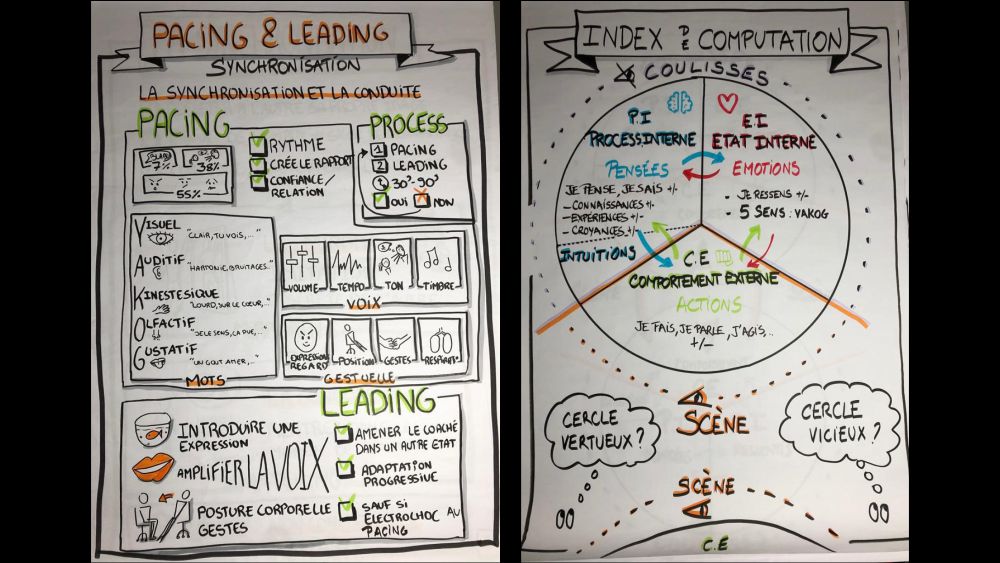 PACING & LEADING
SYNCHRONISATION
LA SYNCHRONISATION ET LA CONDUITE
PACING
7%
38%
55%
RYTHME
CRÉE LE RAPPORT
CONFIANCE/
RELATION
PROCESS
1 PACING
2 LEADING
30"-90"
OUI NON
VISUEL
"CLAIR, TU VOIS,..."
AUDITIF
"HARMONIE, BRUITAGES..."
KINESTESIQUE
"LOURD, SUR LE CŒUR,..."
OLFACTIF
"JE LE SENS, ÇA PUE,..."
GUSTATIF
"UN GOUT AMER,..."
MOTS
VOLUME TEMPO TON TIMBRE
VOIX
EXPRESSION
REGARD
POSITION
GESTES
RESPIRAT°
GESTUELLE
LEADING
INTRODUIRE UNE
EXPRESSION
AMPLIFIER LA VOIX
POSTURE CORPORELLE
GESTES
AMENER LE COACHÉ
DANS UN AUTRE ETAT
ADAPTATION
PROGRESSIVE
SAUF SI
ELECTROCHOC AU
PACING
INDEX DE COMPUTATION
COULISSES
P.I
PROCESS INTERNE
PENSÉES
JE PENSE, JE SAIS +/-
- CONNAISSANCES +/-
- EXPÉRIENCES +/-
- CROYANCES +/-
INTUITIONS
E.I
ETAT INTERNE
EMOTIONS
- JE RESSENS +/-
- 5 SENS : VAKOG
C.E
COMPORTEMENT EXTERNE
ACTIONS
JE FAIS, JE PARLE, J'AGIS,..
+/-
SCÈNE
CERCLE
VERTUEUX ?
CERCLE
VICIEUX ?
SCÈNE
C.E